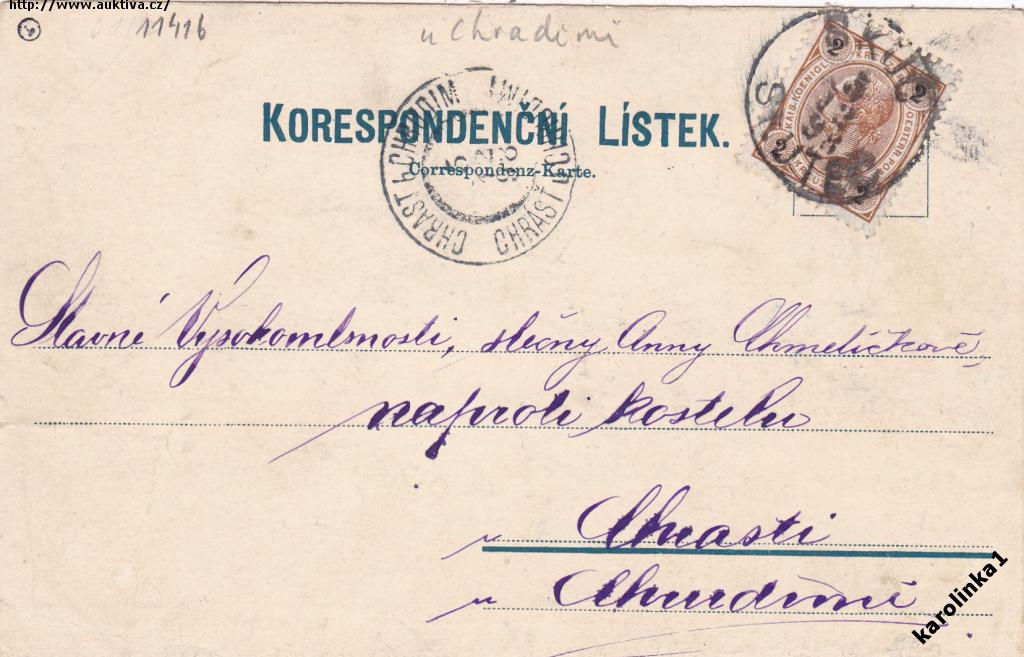 http://www.auktiva.cz/
11416
u Chrudimi
KORESPONDENČNÍ LÍSTEK.
Correspondenz-Karte.
CHRAST CHRUDIM
CHRAST
2
2
2
2
KAIS. KOENIGL.
OESTERR. PO
Slavné Vysokomlsnosti, slečny Anny Chmelíčkově,
naproti kostelu
v Chrasti
u Chrudimi
karolinka1